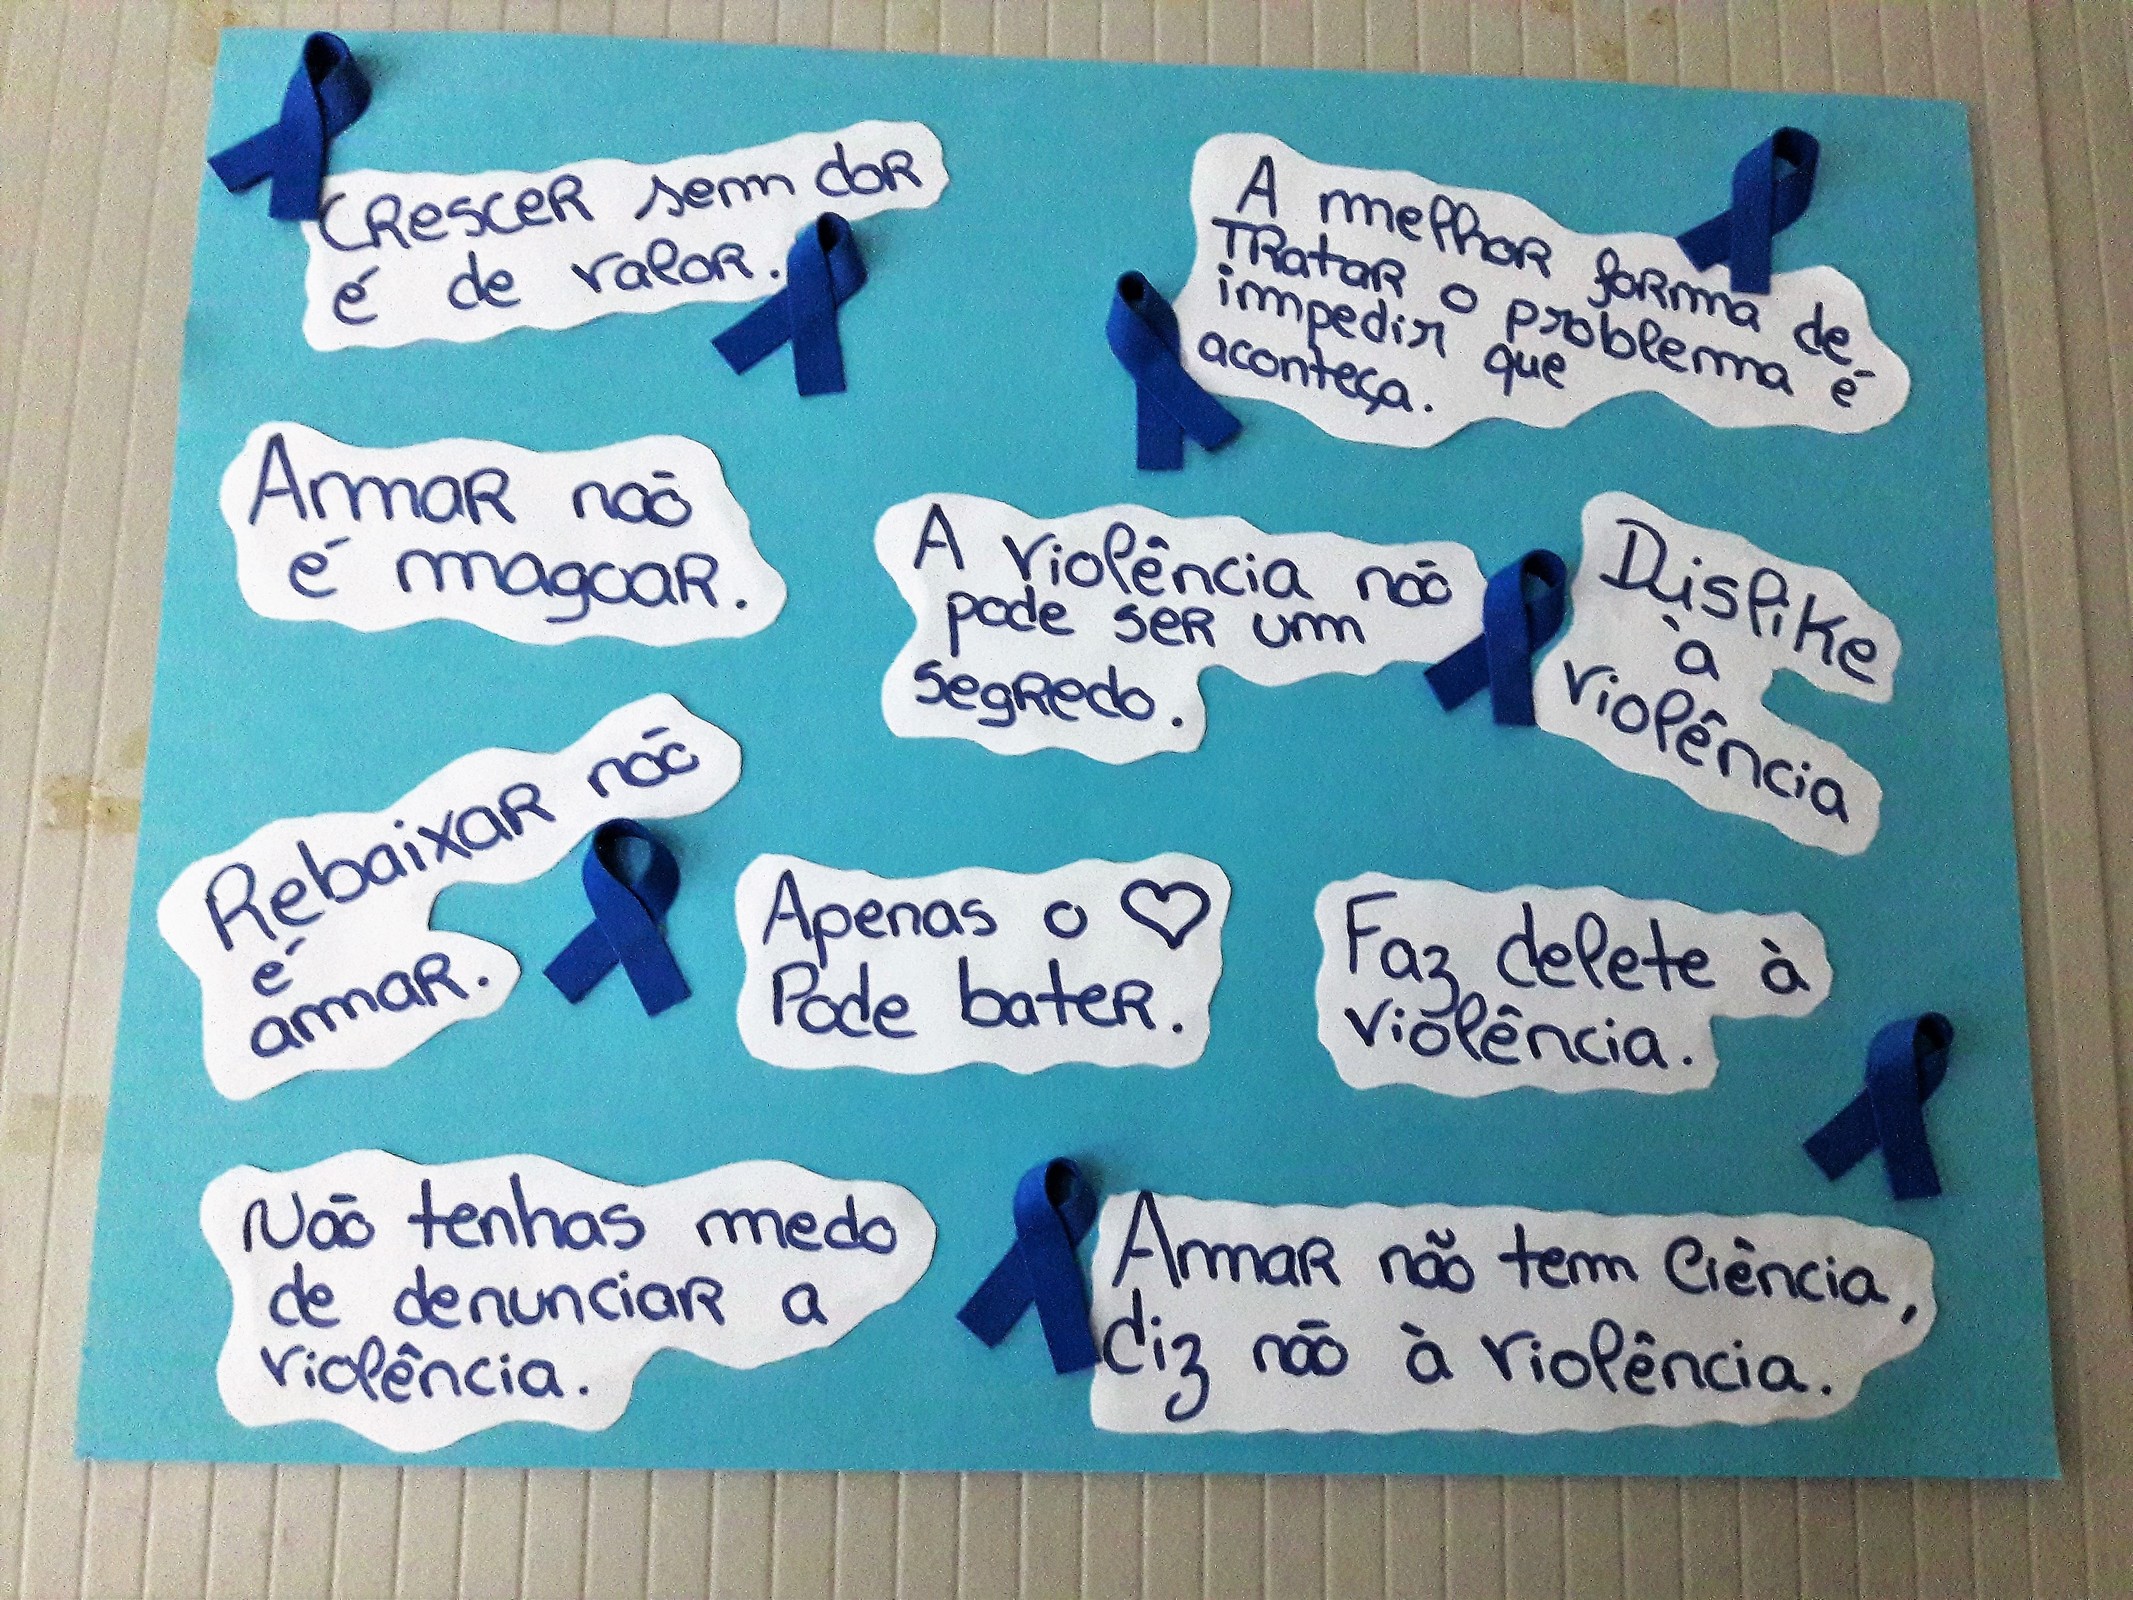 Crescer sem dor
é de valor.
A melhor forma de
Tratar o problema é
impedir que
aconteça.
Amar não
é magoar.
A violência não
pode ser um
segredo.
Dislike
à
violência
Rebaixar não
é
amar.
Apenas o ♡
Pode bater.
Faz delete à
violência.
Não tenhas medo
de denunciar a
violência.
Amar não tem Ciência,
diz não à violência.